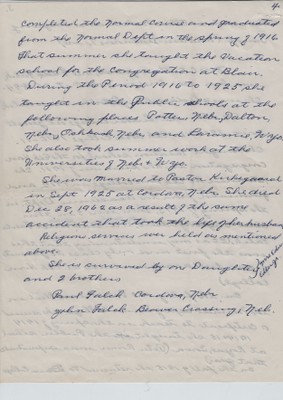 4.
Completed the Normal Course and graduated
from the Normal Dept in the Spring of 1916
that summer she taught the Vacation
school for the Congregation at Blair.
During the Period 1916 to 1925 she
taught in the Public schools at the
following places Potter, Nebr, Dalton,
Nebr, Oshkosh Nebr and Laramie, Wyo.
She also took summer work at the
Universities of Nebr & Wyo.
She was married to Pastor Kirkegaard
in Sept 1925 at Cordova, Nebr. She died
Dec 28, 1962 as a result of the same
accident that took the life of her husband
Religious services were held as mentioned
above.
She is survived by one Daughter
and 2 brothers
Paul Falck Cordova, Nebr
John Falck Beaver Crossing, Neb.